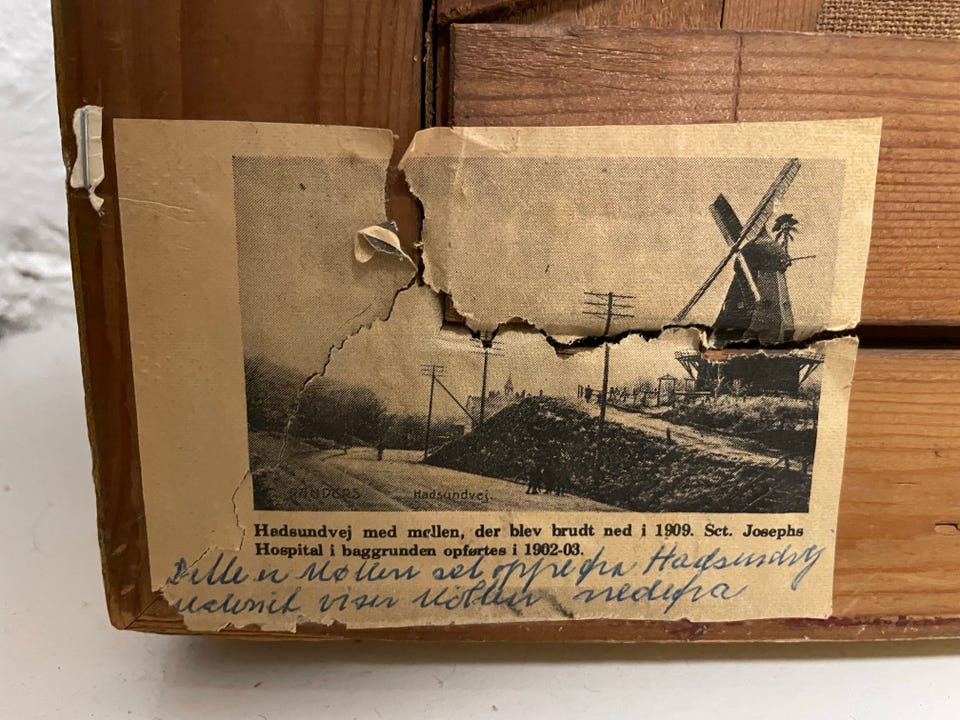 RANDERS Hadsundvej.
Hadsundvej med møllen, der blev brudt ned i 1909. Sct. Josephs
Hospital i baggrunden opførtes i 1902-03.
Dette er Møllen set oppe fra Hadsundvej
Maleriet viser Møllen nedefra